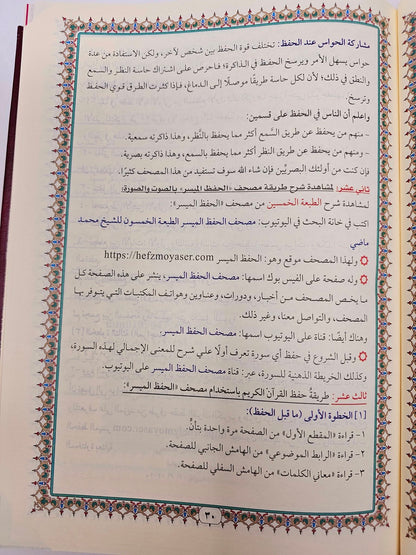 مشاركة الحواس عند الحفظ: تختلف قوة الحفظ بين شخص لآخر، ولكن الاستفادة من عدة
حواس يسهل الأمر ويرسخ الحفظ في الذاكرة؛ فاحرص على اشتراك حاسة النظر والسمع
والنطق في ذلك؛ لأن لكل حاسة طريقًا موصلًا إلى الدماغ، فإذا كثرت الطرق قوي الحفظ
وترسخ.
واعلم أن الناس في الحفظ على قسمين:
- منهم من يحفظ عن طريق السمع أكثر مما يحفظ بالنظر، وهذا ذاكرته سمعية.
- ومنهم من يحفظ عن طريق النظر أكثر مما يحفظ بالسمع، وهذا ذاكرته بصرية.
فإن كنت من أولئك البصريين فإن شاء الله سوف تستفيد من هذا المصحف كثيرًا.
ثاني عشر: لمشاهدة شرح طريقة مصحف «الحفظ الميسر» بالصوت والصورة:
لمشاهدة شرح الطبعة الخمسين من مصحف «الحفظ الميسر»:
اكتب في خانة البحث في اليوتيوب: مصحف الحفظ الميسر الطبعة الخمسون للشيخ محمد
ماضي
ولهذا المصحف موقع وهو: الحفظ الميسر https://hefzmoyaser.com
وله صفحة على الفيس بوك اسمها: مصحف الحفظ الميسر، ينشر على هذه الصفحة كل
ما يخص المصحف من أخبار، ودورات، وعناوين وهواتف المكتبات التي يتوفر بها
المصحف، والتواصل معنا، وغير ذلك.
وهناك أيضًا: قناة على اليوتيوب اسمها: مصحف الحفظ الميسر.
وقبل الشروع في حفظ أي سورة تعرف أولًا على شرح للمعنى الإجمالي لهذه السورة،
وكذلك الخريطة الذهنية للسورة، عبر: قناة مصحف الحفظ الميسر على اليوتيوب.
ثالث عشر: طريقة حفظ القرآن الكريم باستخدام مصحف «الحفظ الميسر»:
[١] الخطوة الأولى (ما قبل الحفظ):
١- قراءة «المقطع الأول» من الصفحة مرة واحدة بتأن.
٢- قراءة «الرابط الموضوعي» من الهامش الجانبي للصفحة.
٣- قراءة «معاني الكلمات» من الهامش السفلي للصفحة.
٣٠